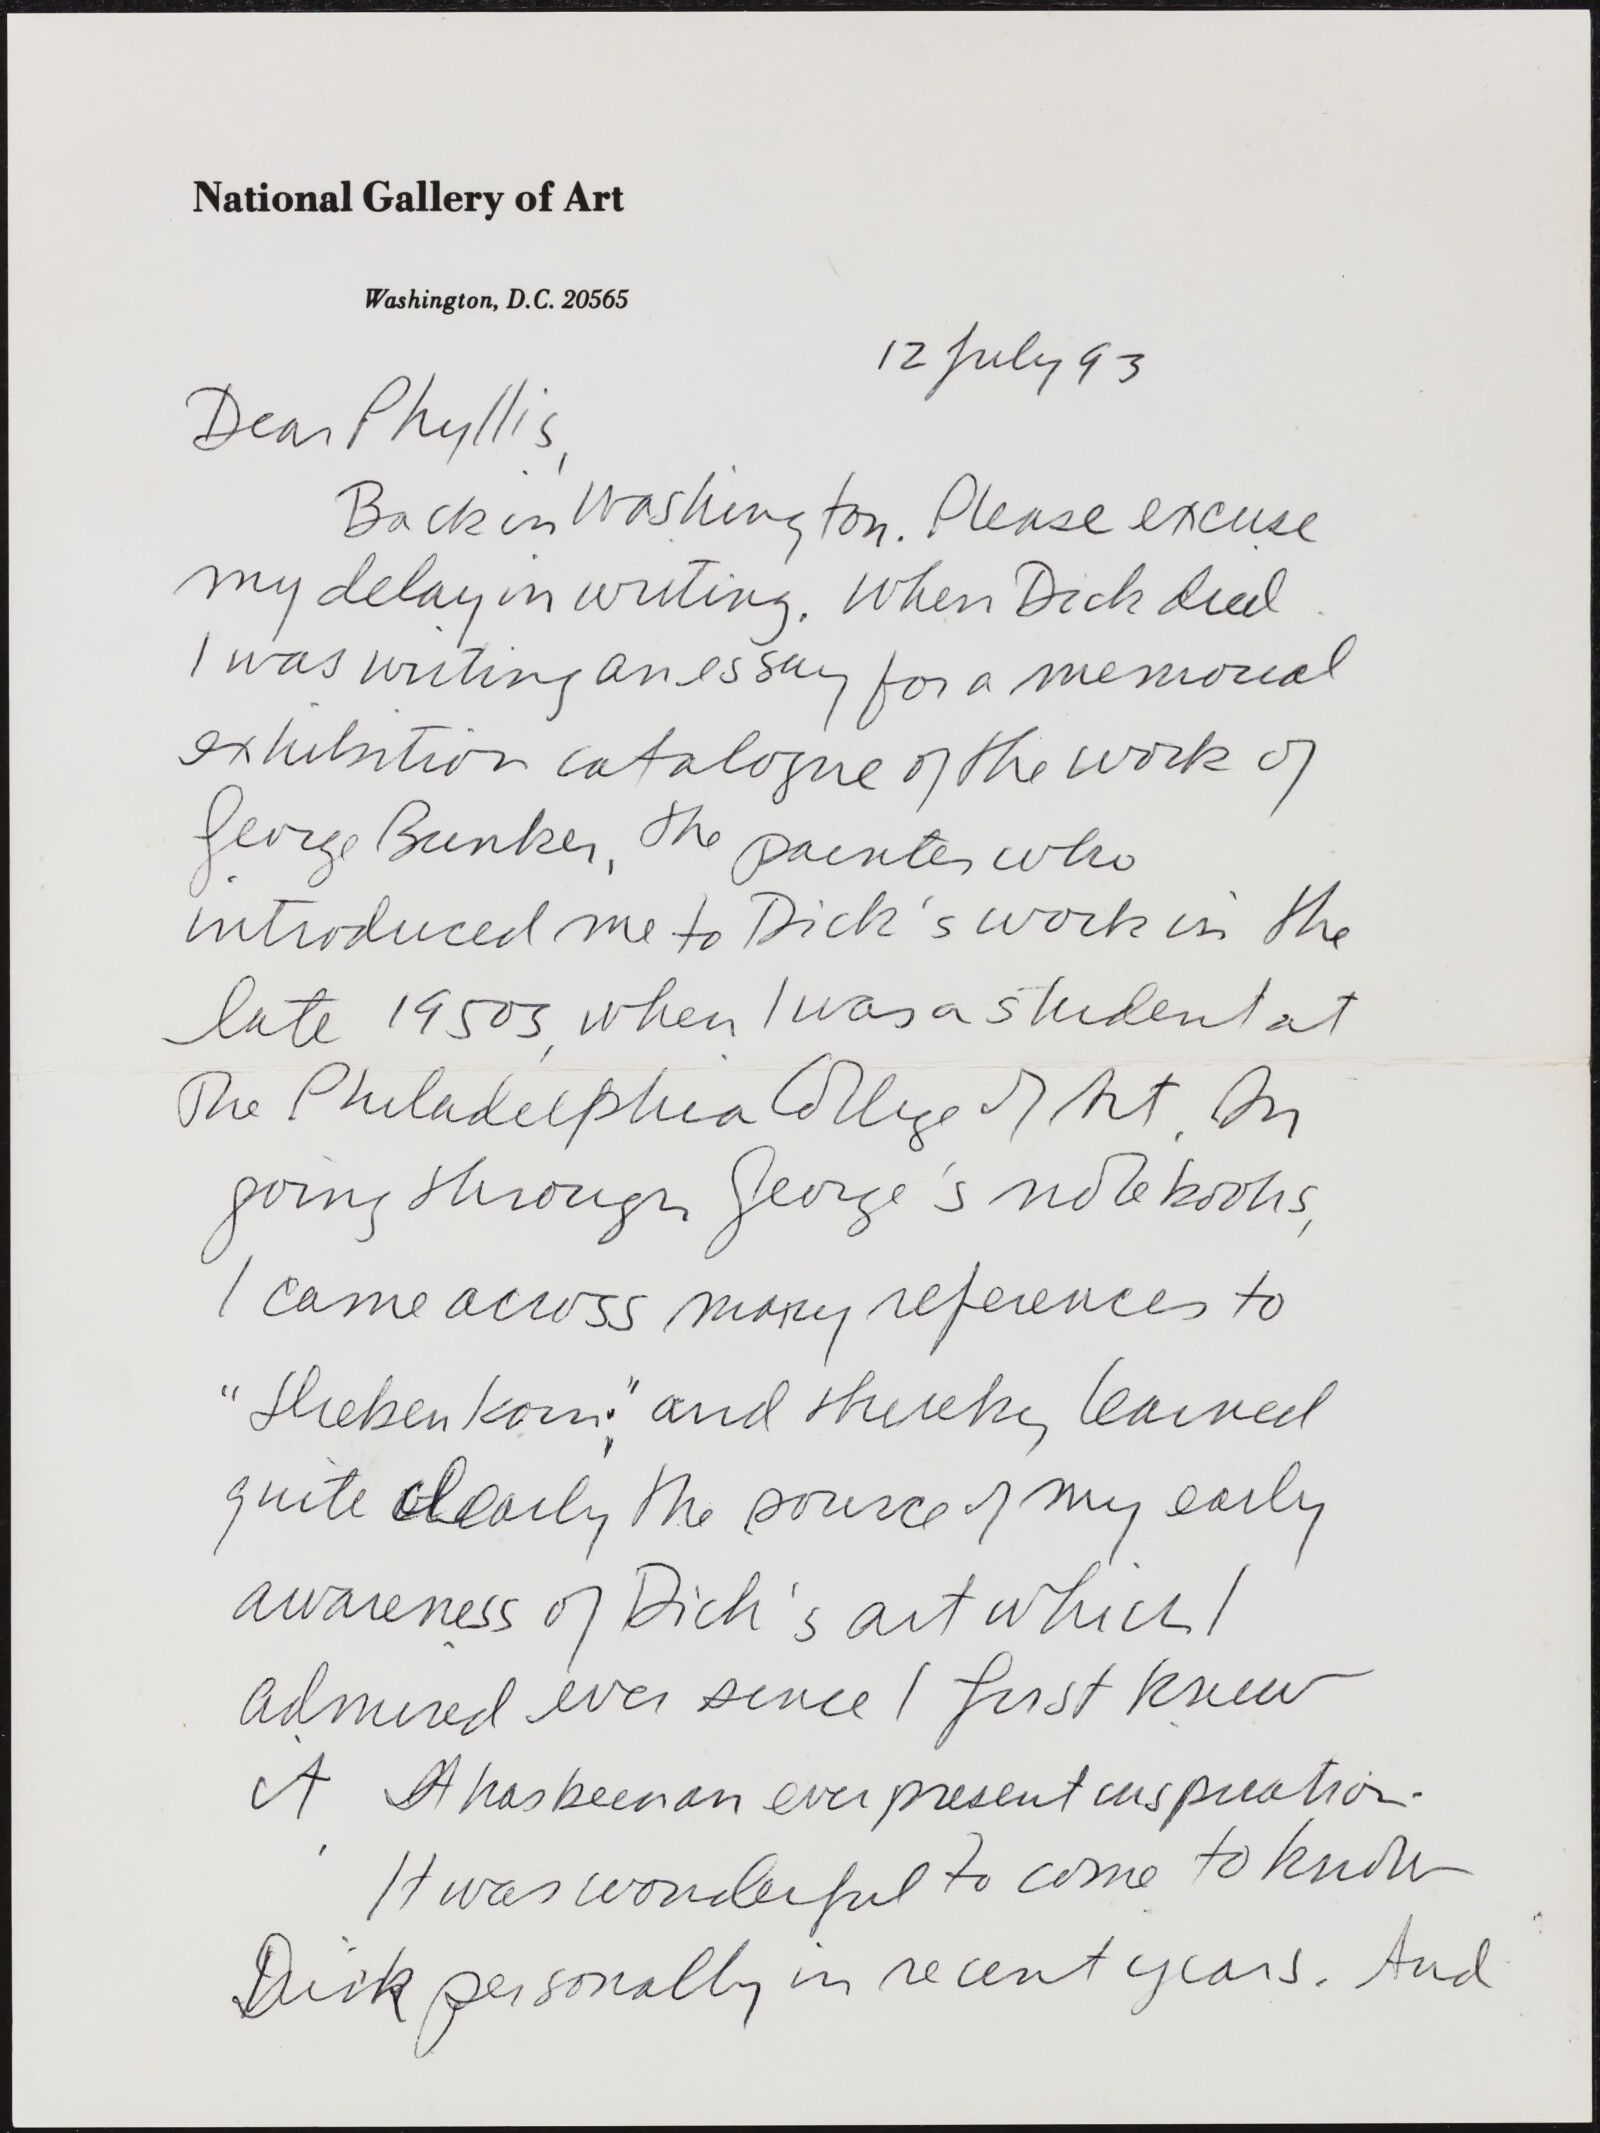 National Gallery of Art
Washington, D.C. 20565
12 July 93
Dear Phyllis,
Back in Washington. Please excuse
my delay in writing. When Dick died
I was writing an essay for a memorial
exhibition catalogue of the work of
George Bunker, the painter who
introduced me to Dick's work in the
late 1950s, when I was a student at
The Philadelphia College of Art. In
going through George's notebooks,
I came across many references to
"Diebenkorn," and thereby learned
quite clearly the source of my early
awareness of Dick's art which I
admired ever since I first knew
it. It has been an ever present inspiration.
It was wonderful to come to know
Dick personally in recent years. And